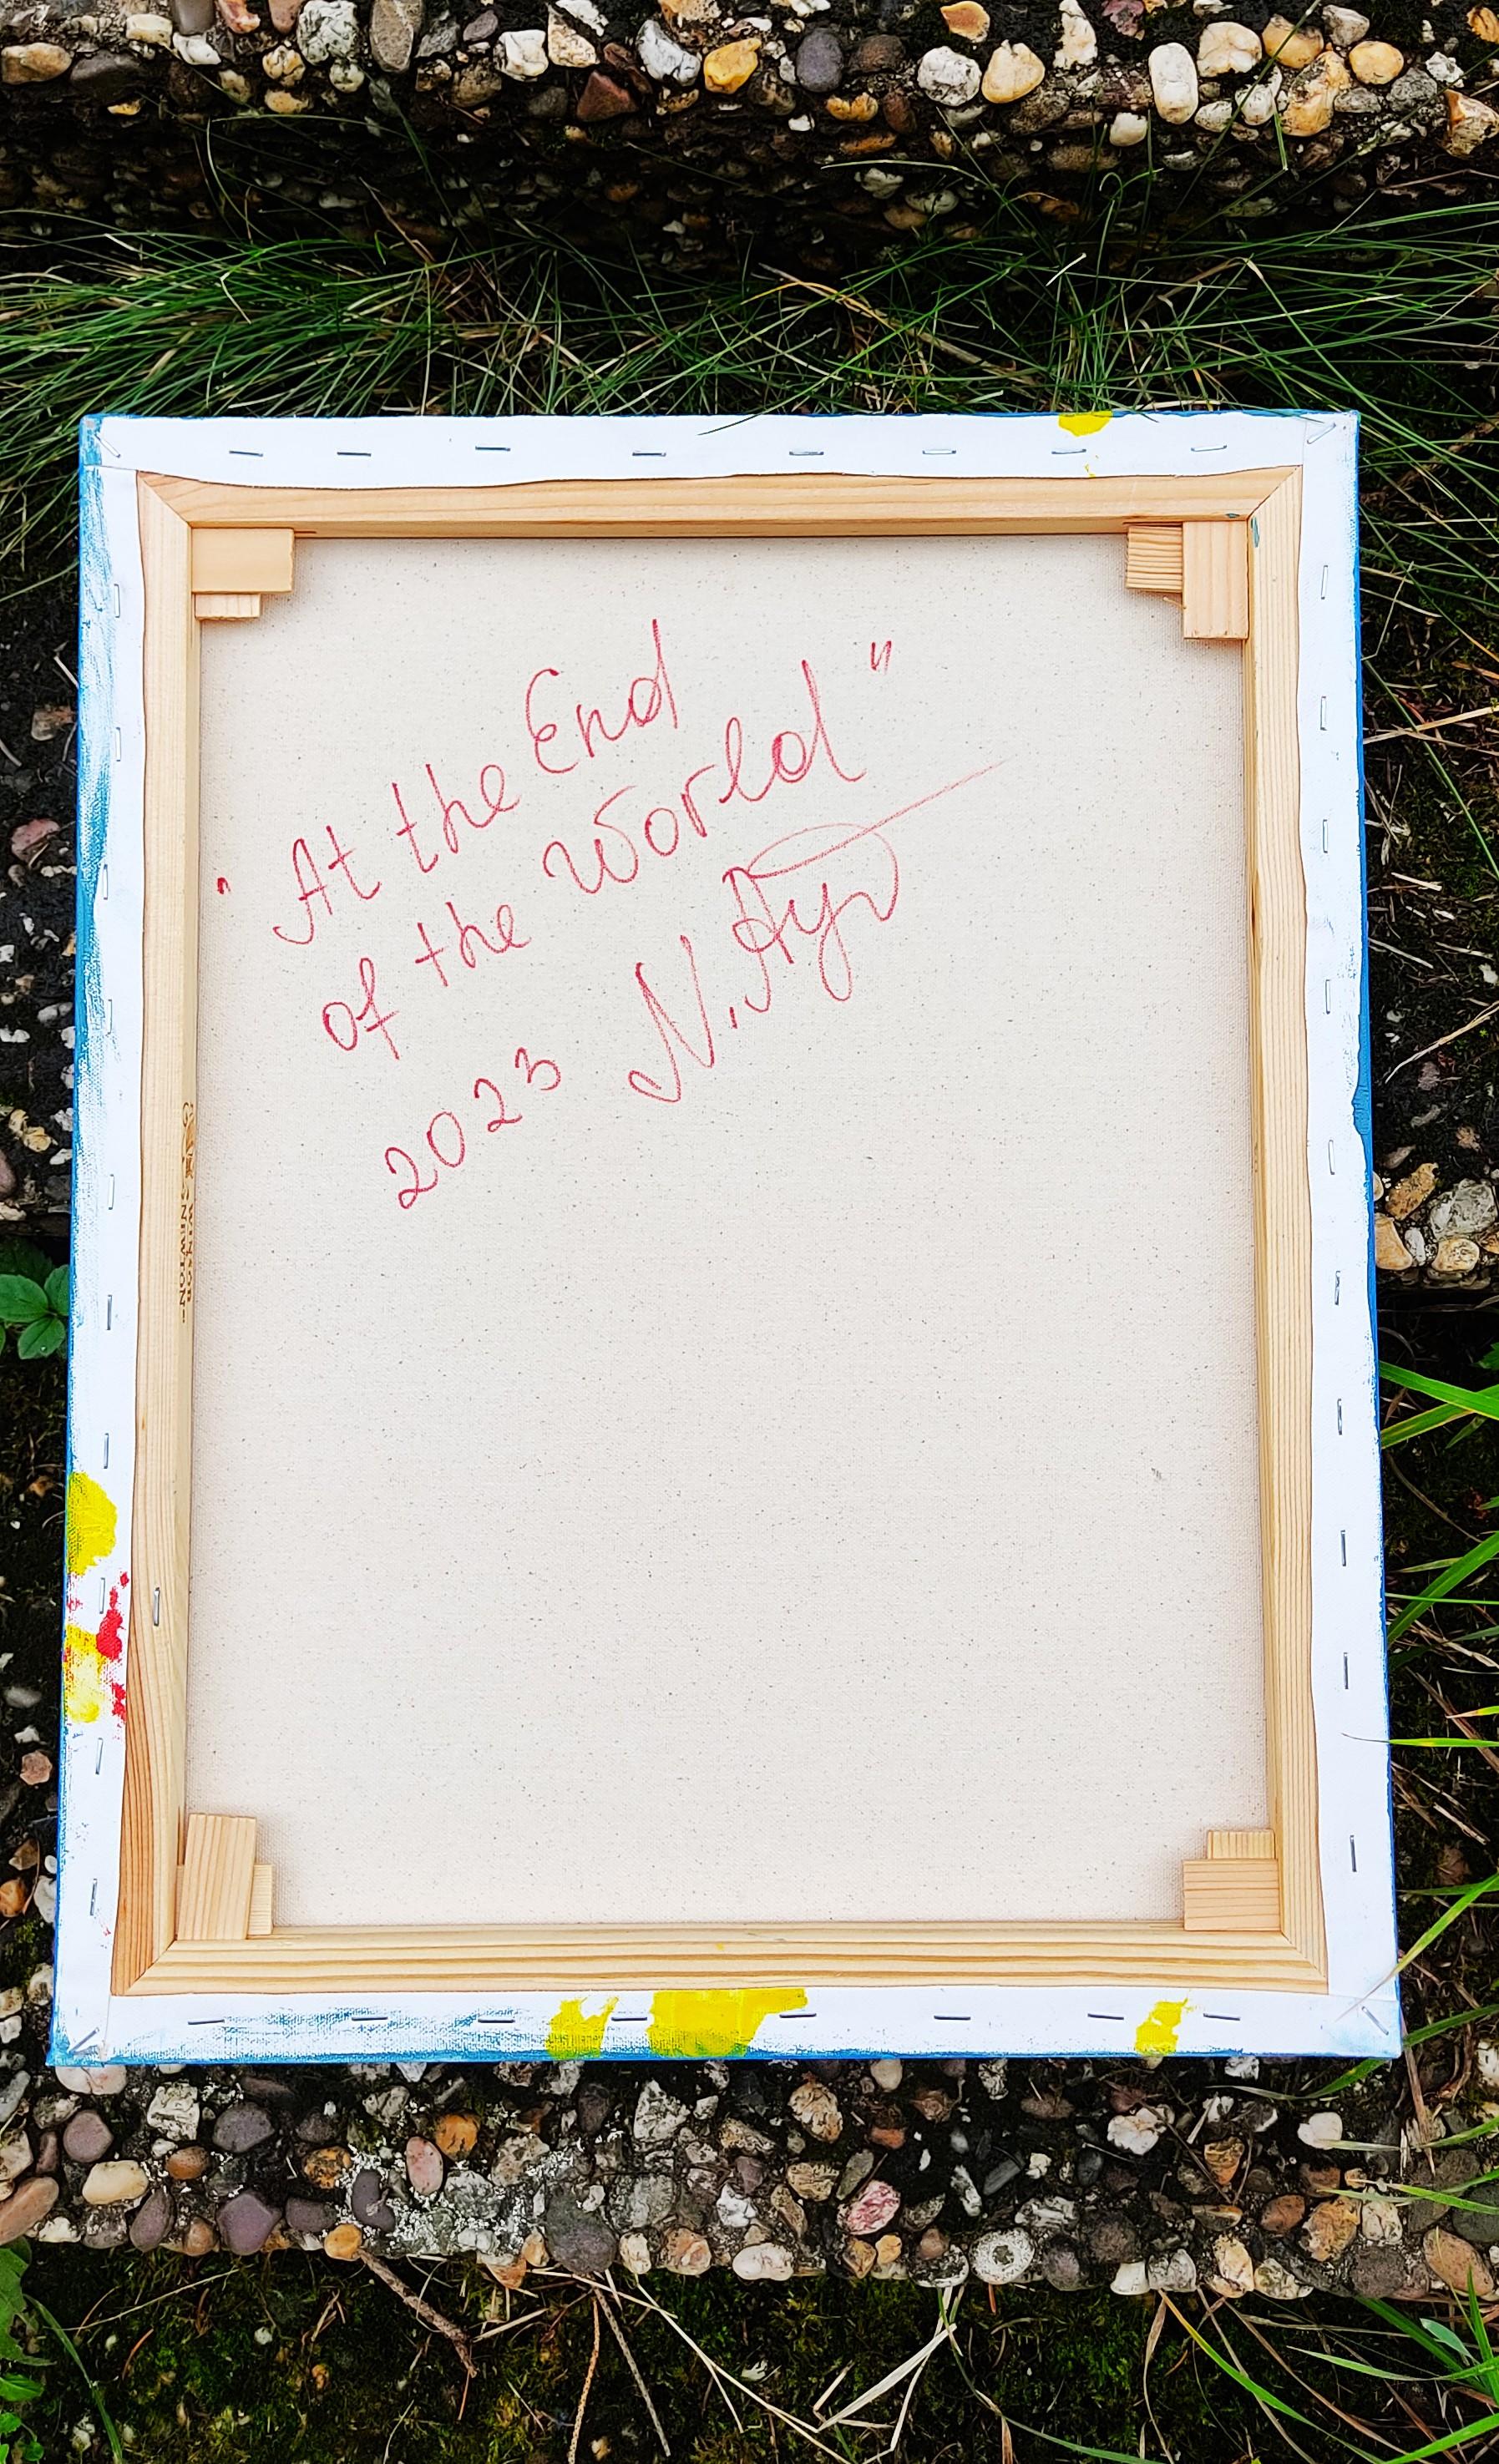 "At the End
of the World"
2023 N.
WINSOR
& NEWTON